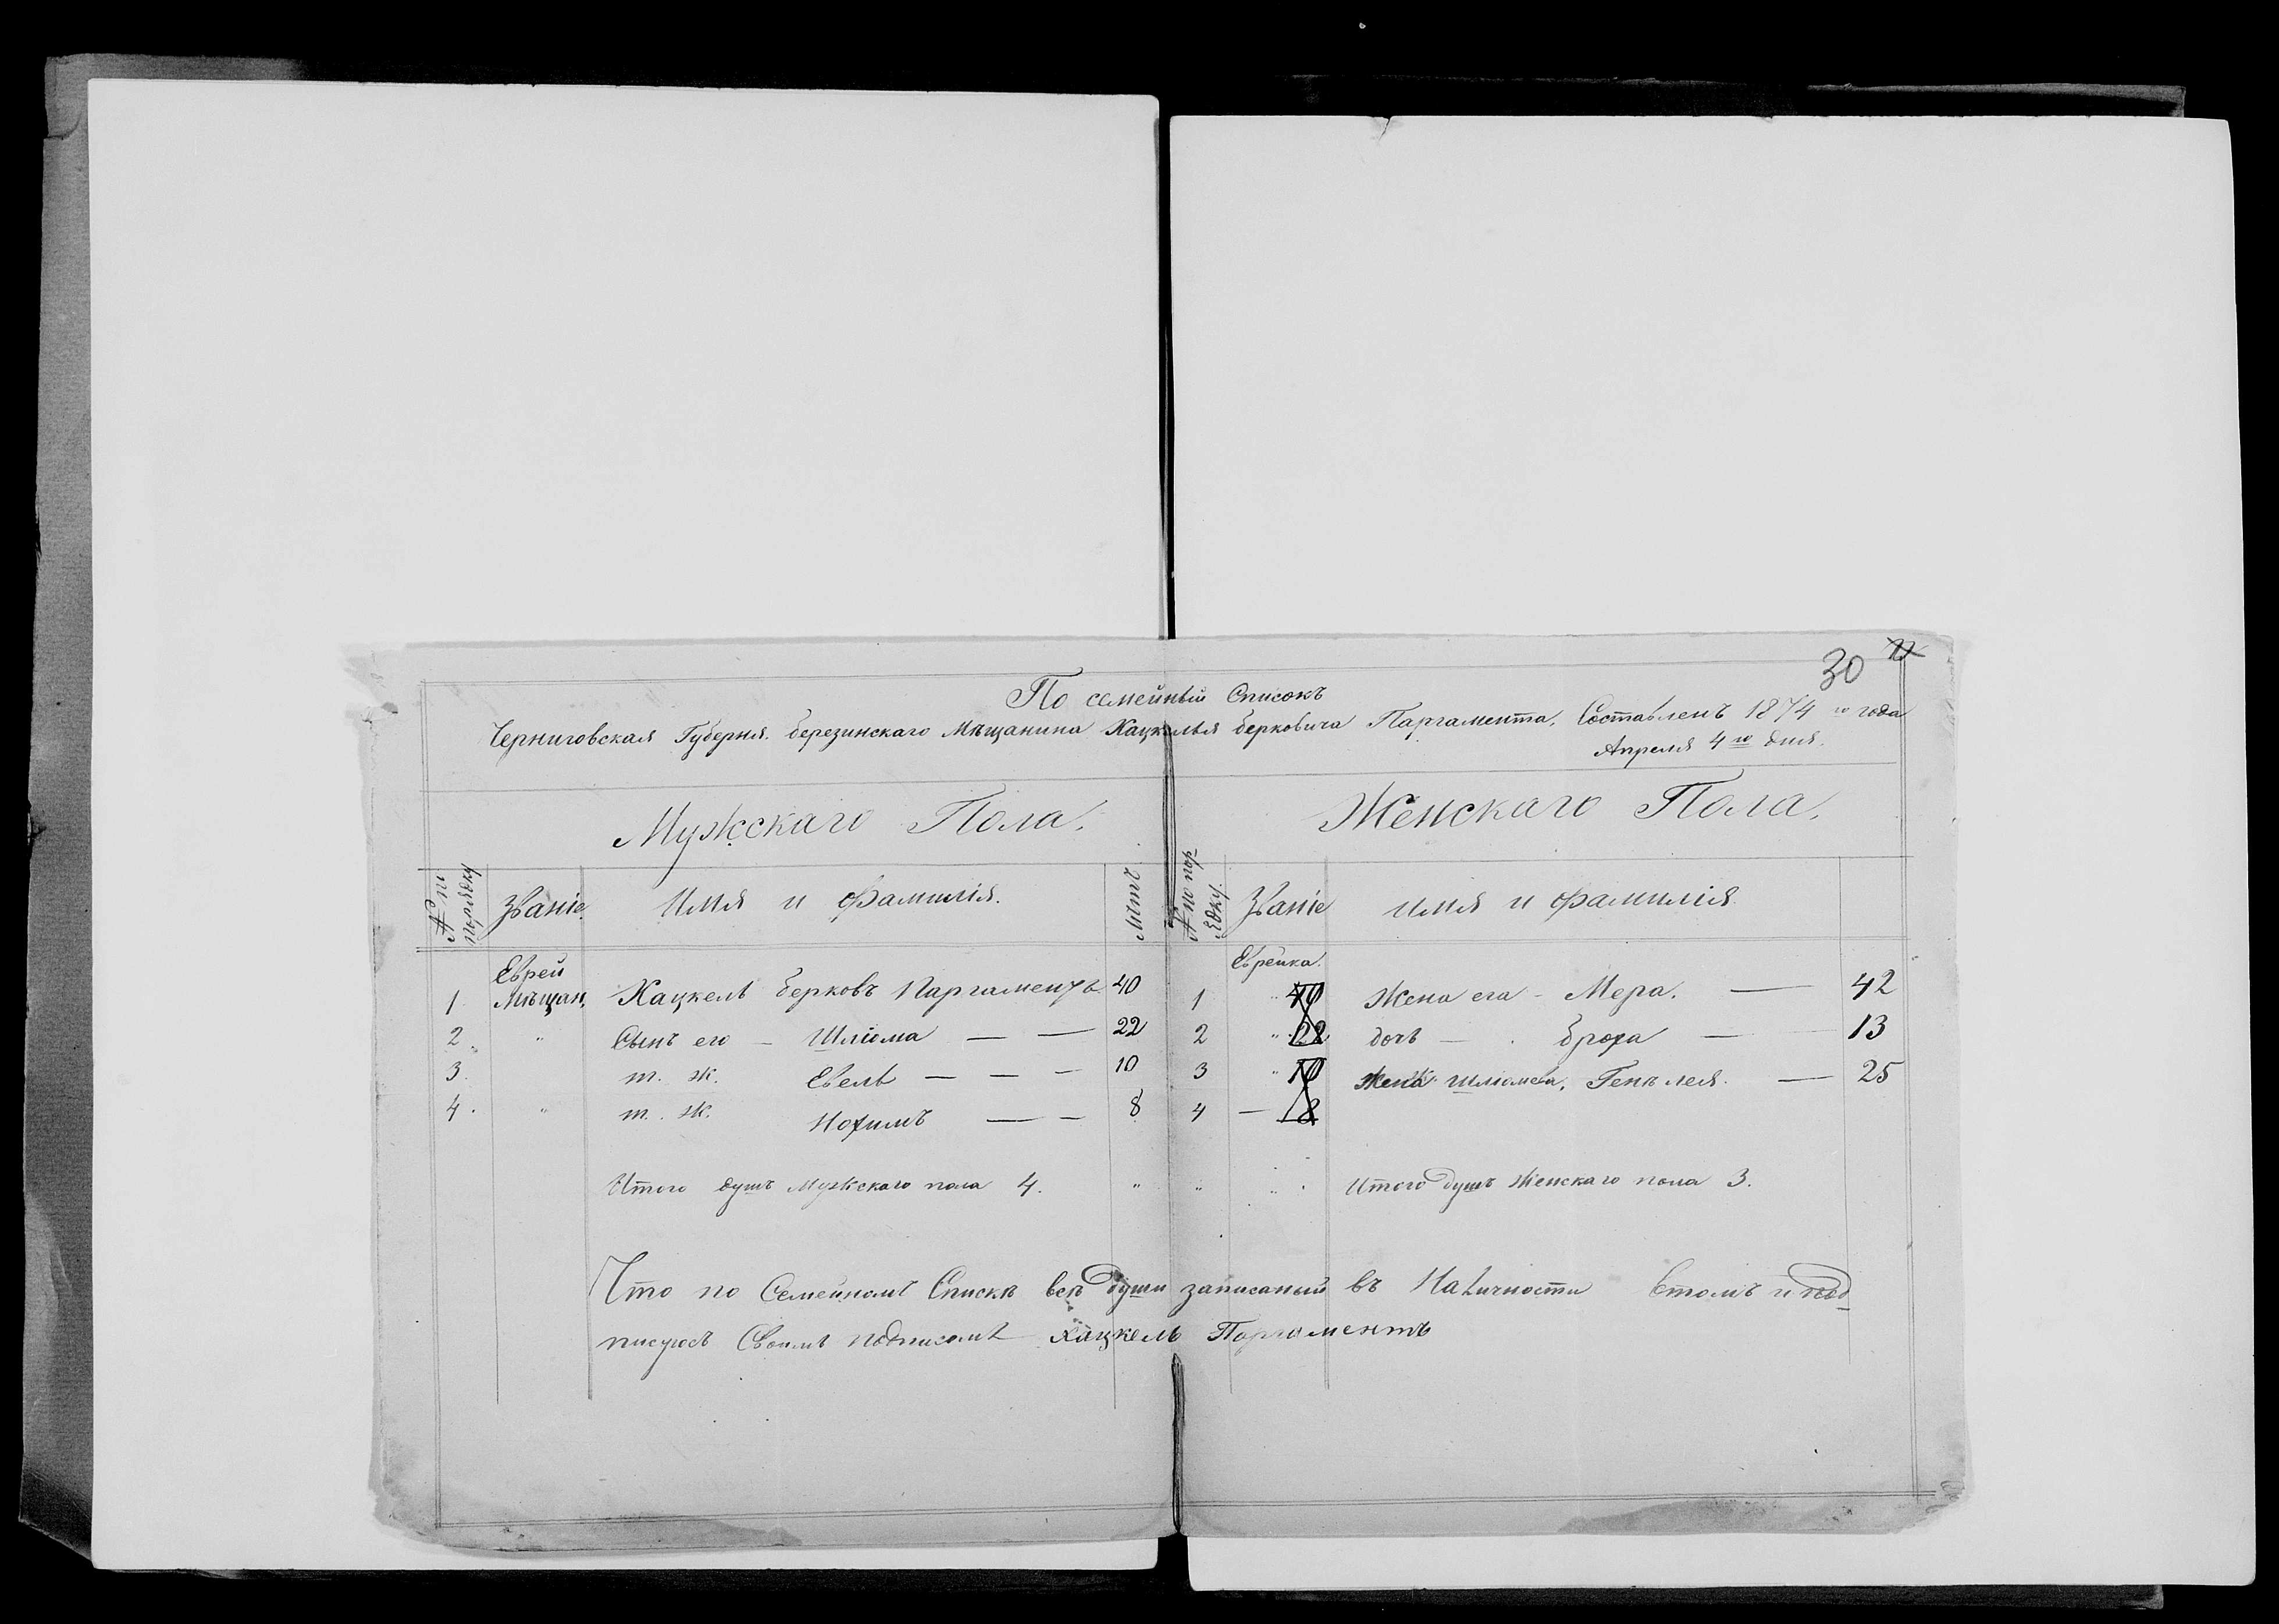 30
По семейный Списокъ
Черниговская Губерня. березинскаго Мѣщанина Хацкелья берковича Паргамента, Составленъ 1874 го года
Апреля 4 го дня.
Мужскаго Пола. Женскаго Пола.
№ по порядку Званіе Имя и Фамилія. Летъ № по порядку. Званіе имя и фамилія
Еврей Еврейка.
1 Мѣщан. Хацкель берковъ Паргаментъ 40 1 " 40 Жена ега - Мера. — 42
2. " Сынъ его — Шліома — — 22 2 " 22 дочь — Броха — 13
3. т. ж. Евель — — — 10 3 " 10 жена шліомева, Генъ лея. — 25
4. " т. ж. Нохимъ — — 8 4 — 8
Итого душъ Мужскаго пола 4. " " " Итого душъ Женскаго пола 3.
Что по Семейномъ Спискѣ всѣ души записаный въ Наличности втомъ и под-
писуюсъ Своимъ подписомъ Хацкель Паргаментъ